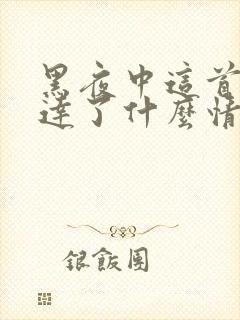 黑夜中這首
達了什麼情
銀飯團